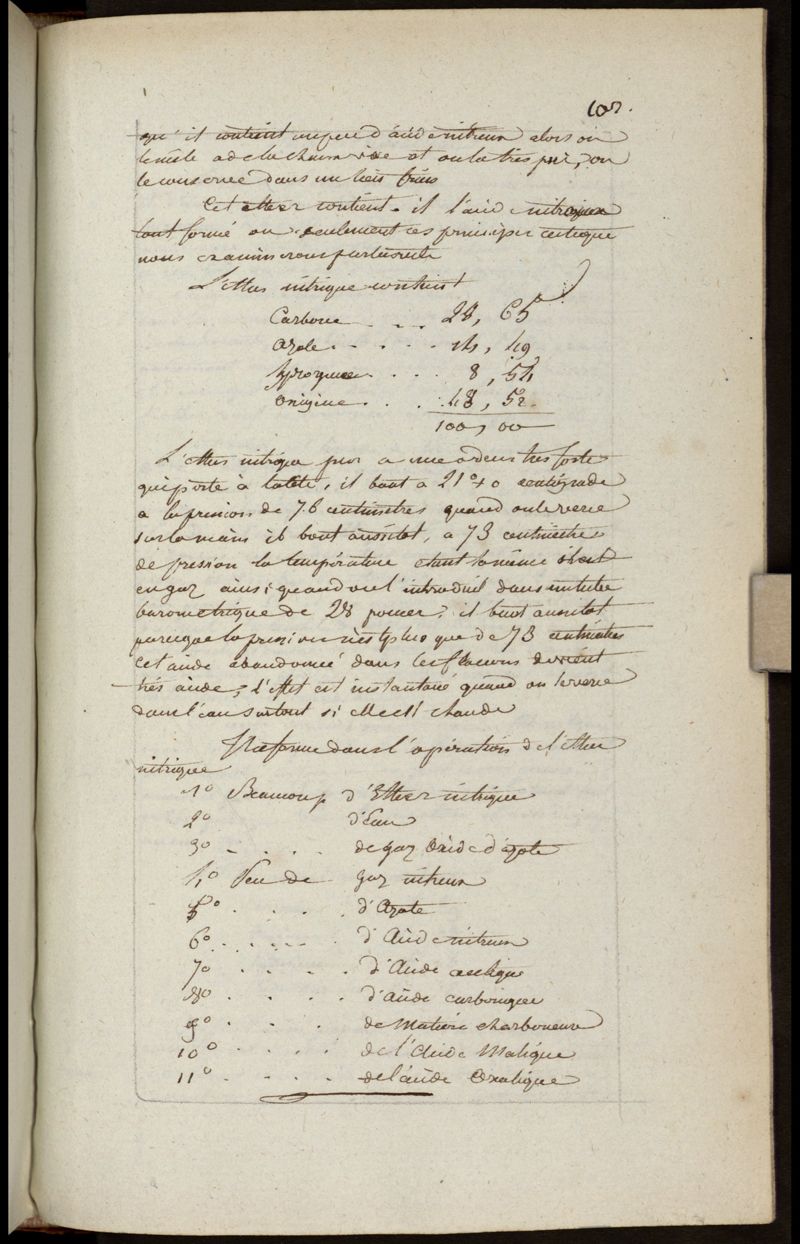 107.
qu'il contient un peu d'acide nitreux alors on
le mêle a de la chaux vive et on la très pur, on
le conserve dans un lieu frais
Cet etter contient-il l'acide nitrique
tout formé ou seulement ces principes cetique
nous examinerons par la suite
L'etter nitrique contient
Carbone . . . 28, 65
Azote . . . . . 14, 49
hydrogene . . . 8, 54
Oxigine . . . 48, 52
100, 00
L'etter nitrique pur a une odeur tres forte
qui porte à la tete, il bout a 21° + 0 centigrade
a la pression de 76 centimetres quand on le verse
sur la main il bout aussitot, a 73 centimetre
de pression la température etant la même il est
en gaz ainsi quand on l'introduit dans un tube
barometrique de 28 pouces, il bout aussitot
parceque la pression n'est plus que de 73 centimetres
cet acide abandonné dans les flacons devient
très acide, l'effet est instantané quand on le verse
dans l'eau surtout si elle est chaude
Il se forme dans l'opération de l'etter
nitrique
1° Beaucoup d'Etter nitrique
2° d'Eau
3° - . . . de gaz Oxide d'azote
4° Peu de gaz nitreux
5° . . . . d'Azote
6° . . . . d'Acide nitreux
7° . . . . d'Acide acetique
8° . . . . d'Acide carbonique
9° . . . de Matiere charboneuse
10° . . . . de l'Acide Malique
11° . . . . de l'acide Oxalique